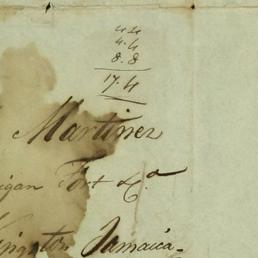 4.4
4.4
8.8
17.4
Martinez
igan Fort & Ca
Kingston Jamaica